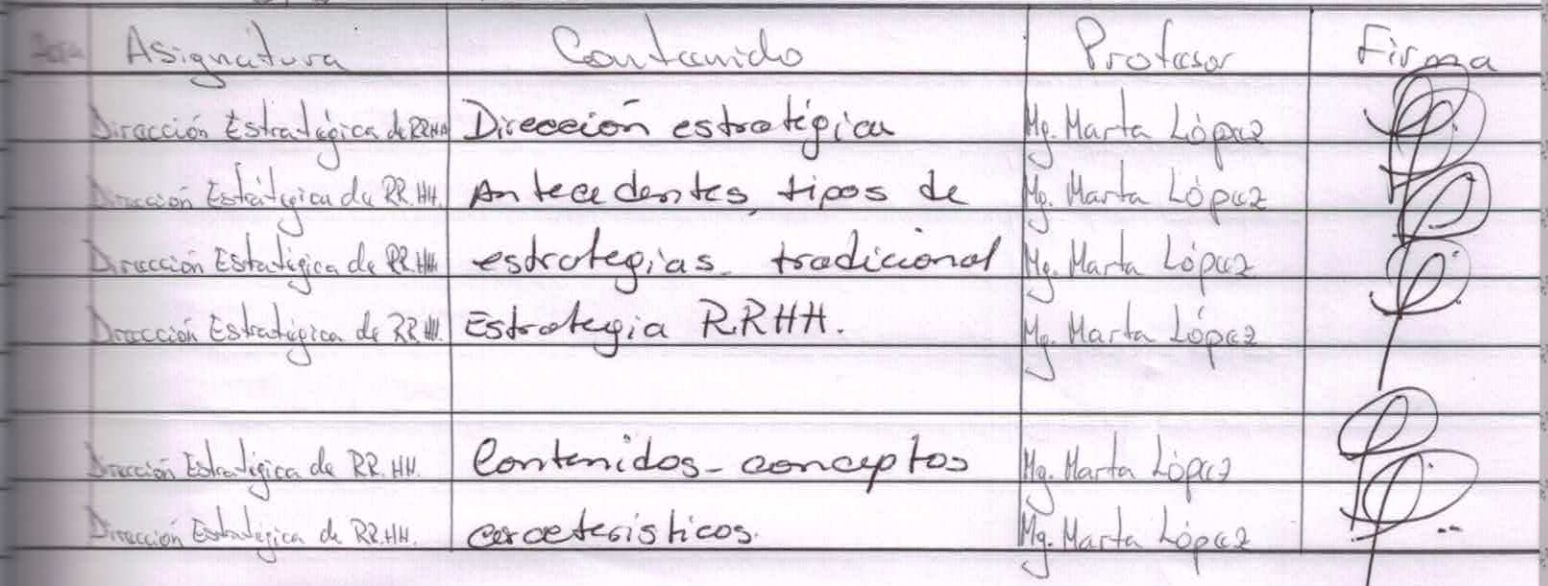 Asignatura Contenido Profesor Firma
Dirección Estratégica de RRHH Dirección estratégica Mg. Marta López
Dirección Estratégica de RR.HH. Antecedentes, tipos de Mg. Marta López
Dirección Estratégica de RR.HH. estrategias. tradicional Mg. Marta López
Dirección Estratégica de RR.HH. Estrategia RRHH. Mg. Marta López
Dirección Estratégica de RR.HH. Contenidos - conceptos Mg. Marta López
Dirección Estratégica de RR.HH. caracteristicos. Mg. Marta López